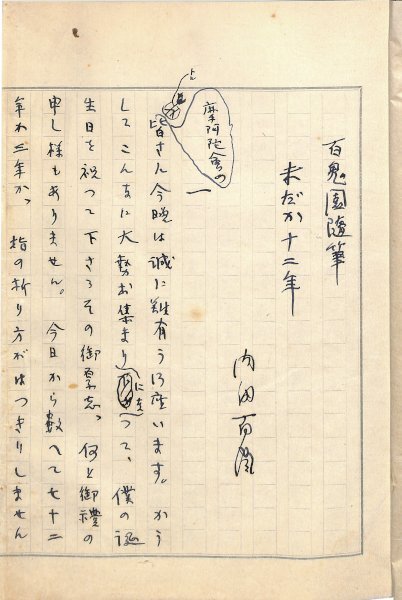 百鬼園隨筆
未だか十二年
内田百閒
摩阿陀會の
一
皆さん今晩は誠に難有う御座います。かう
してこんなに大勢お集まりになつて、僕の誕
生日を祝つて下さるその御懇志、何と御禮の
申し様もありません。今日から數へて七十二
年か三年か、指の折り方がはつきりしません